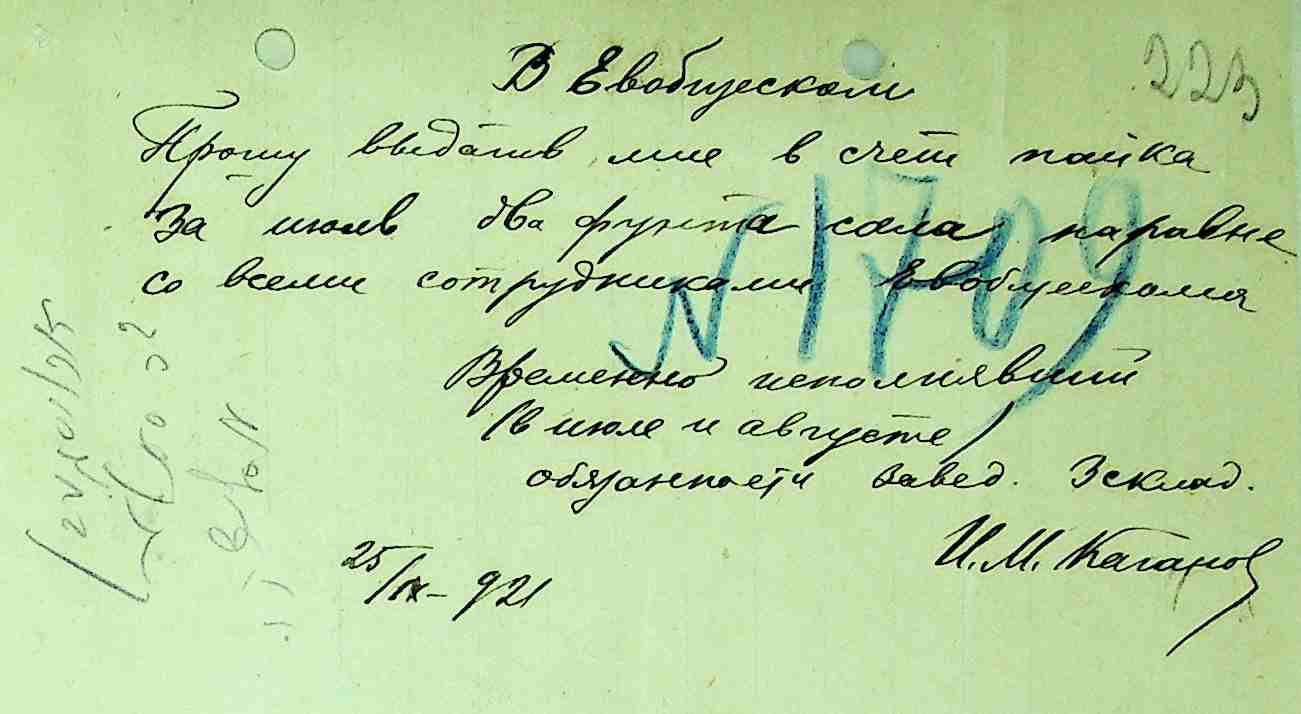 223
В Евобщеском
Прошу выдать мне в счет пайка
за июль два фунта сала наравне
со всеми сотрудниками Евобщескома
N 1709
Временно исполнявший
(в июле и августе)
обязанности завед. Зсклад.
И. М. Каганов
25/IX - 921